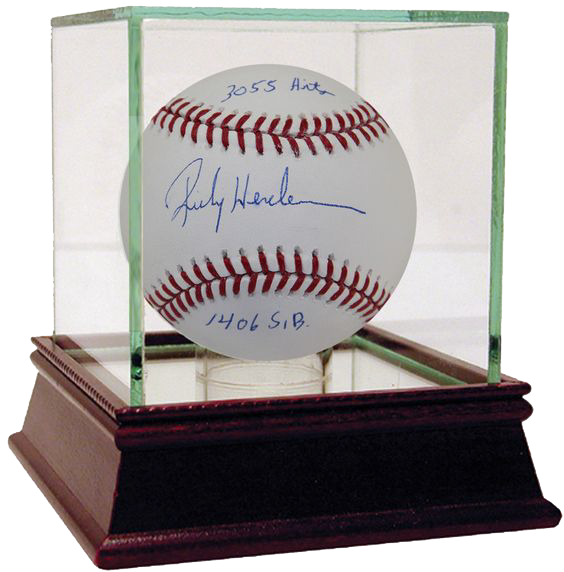 3055 Hits
Rickey Henderson
1406 S.B.